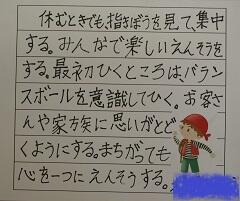 休むときでも、指きぼうを見て、集中
する。みんなで楽しいえんそうを
する。最初ひくところは、バラン
スボールを意識してひく。お客さ
んや家族に思いがとど
くようにする。まちがっても
心を一つにえんそうする。